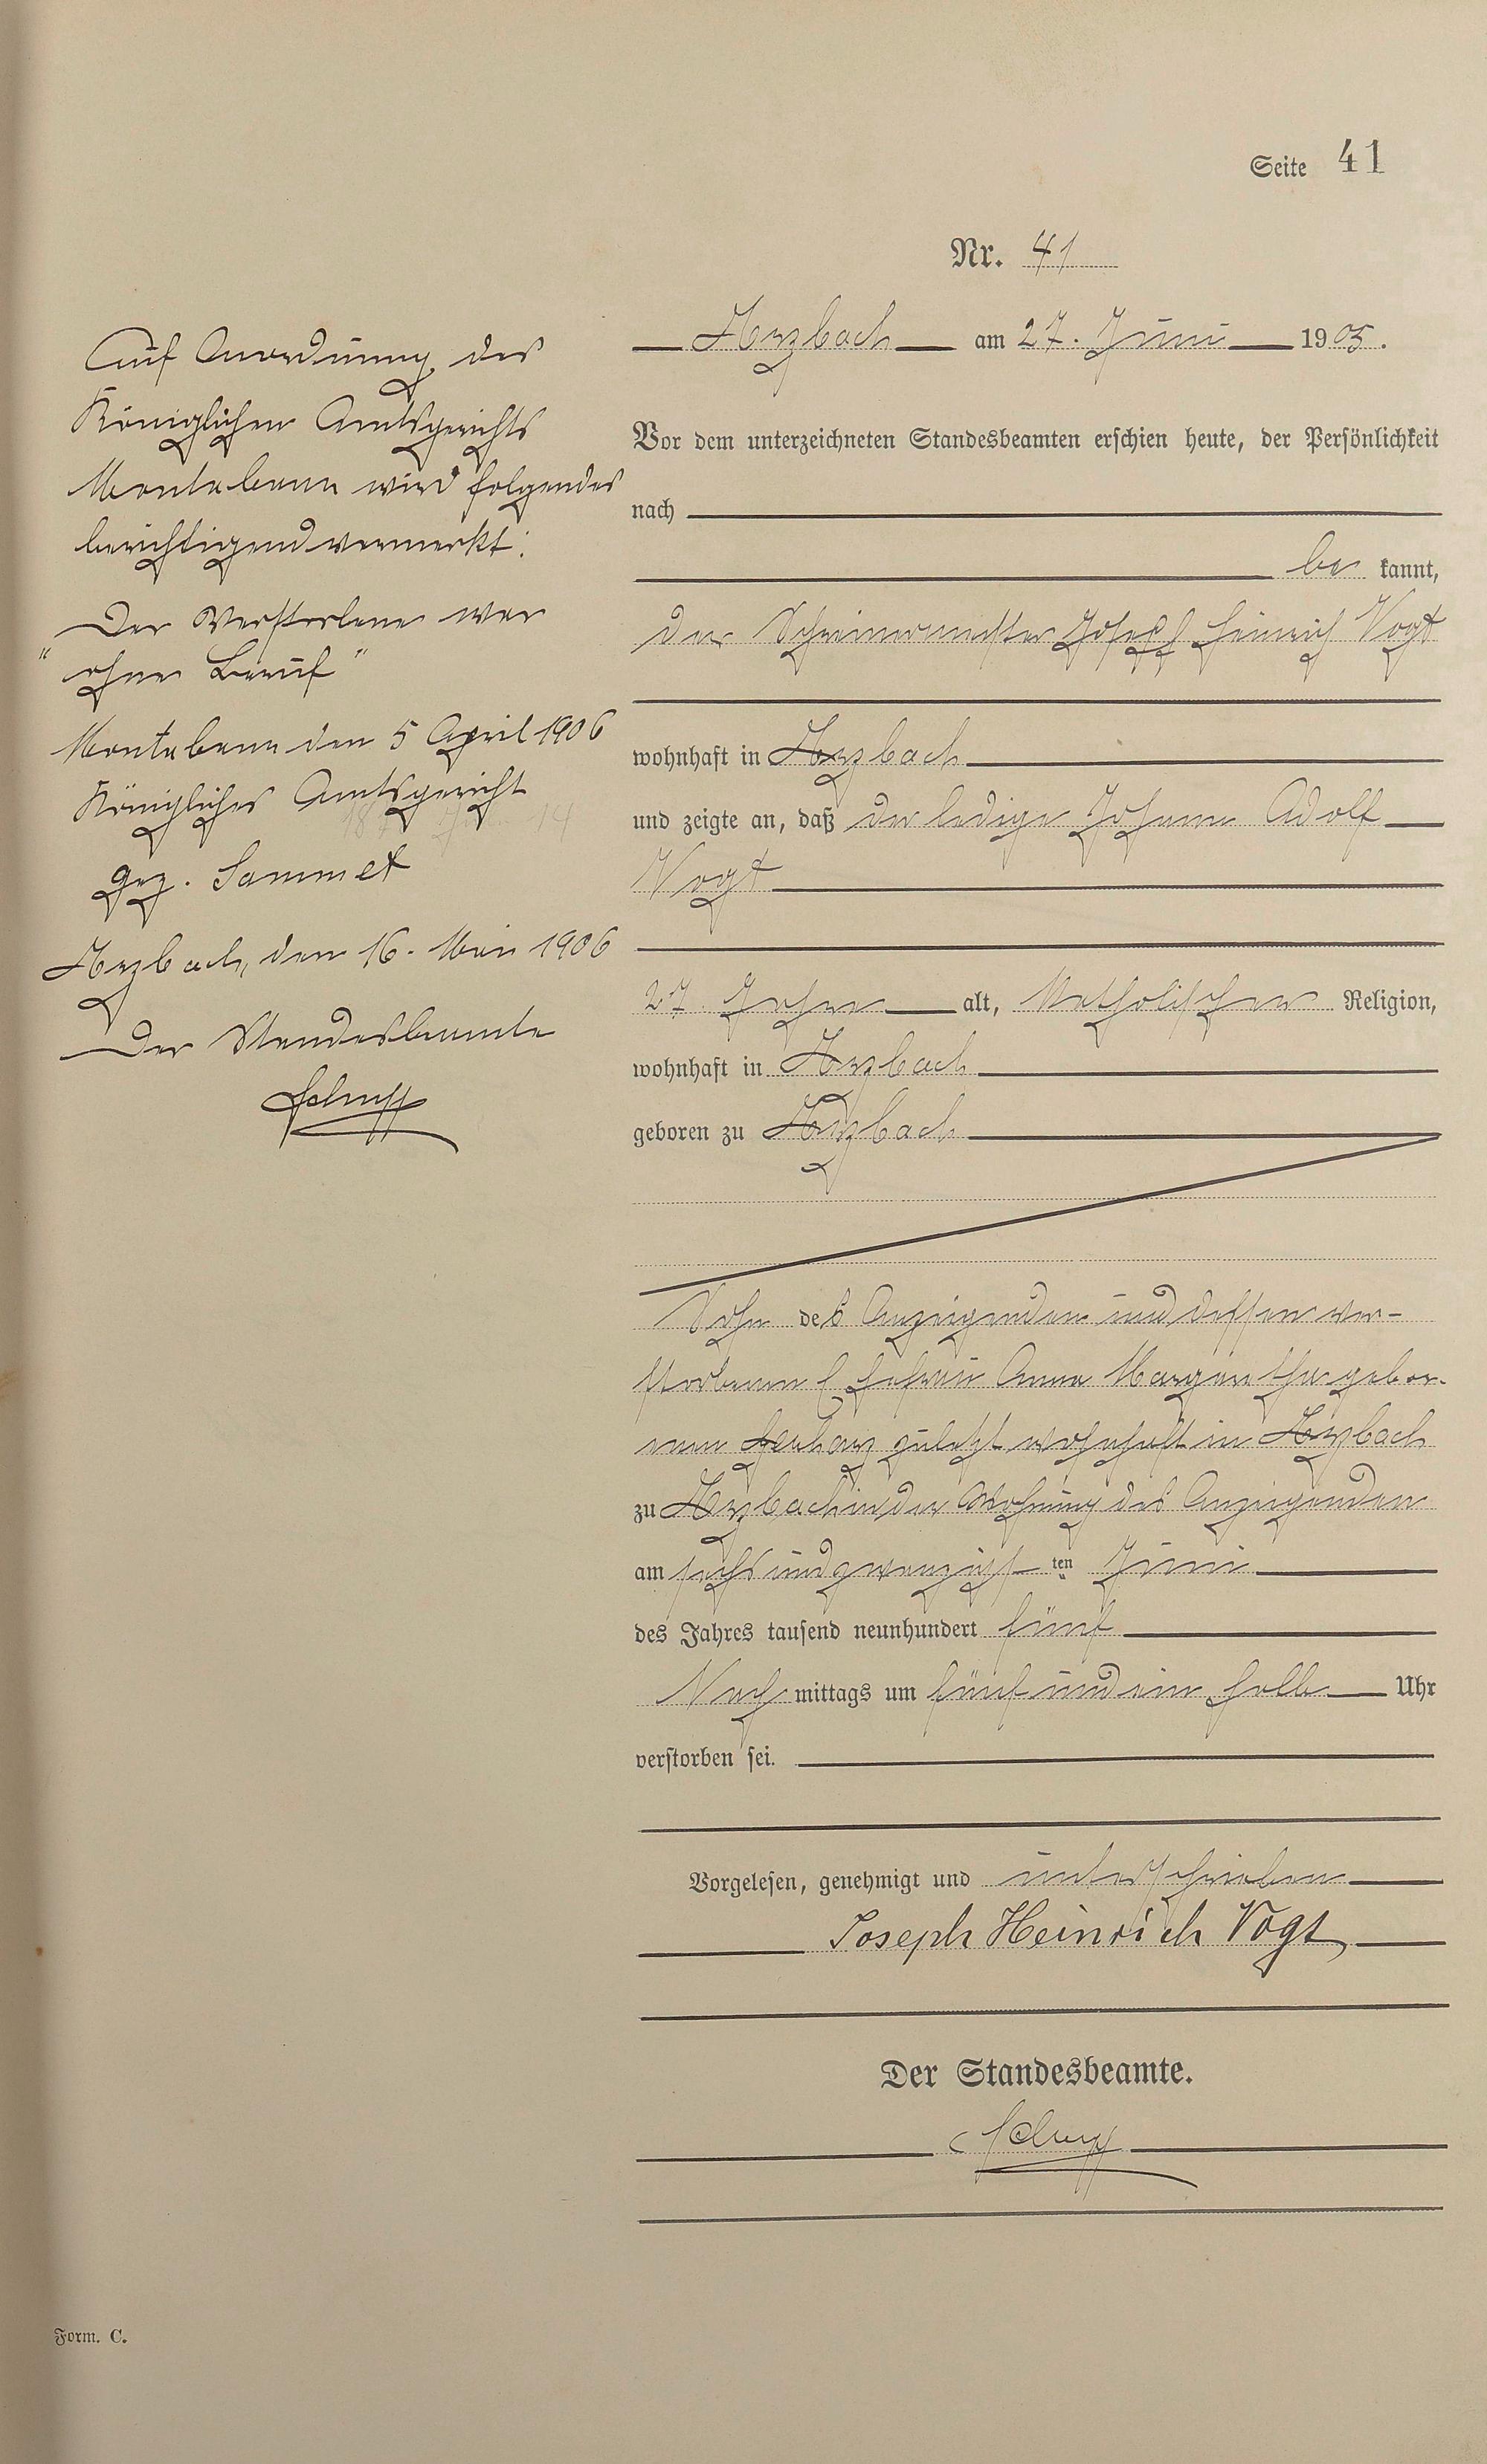 Seite 41
Nr. 41
Arzbach am 27. Juni 1905.
Vor dem unterzeichneten Standesbeamten erschien heute, der Persönlichkeit
nach
be kannt,
der Schreinermeister Joseph Heinrich Vogt
wohnhaft in Arzbach
und zeigte an, daß der ledige Johann Adolf
Vogt
27 Jahre alt, katholischer Religion,
wohnhaft in Arzbach
geboren zu Arzbach
Sohn des Anzeigenden und dessen ver-
storbenen Ehefrau Anna Margaretha gebor-
enen zuletzt wohnhaft in Arzbach
zu Arzbach in der Wohnung des Anzeigenden
am sechsundzwanzigsten Juni
des Jahres tausend neunhundert fünf
Nach mittags um fünf und ein halb Uhr
verstorben sei.
Vorgelesen, genehmigt und unterschrieben
Joseph Heinrich Vogt
Der Standesbeamte.
Auf Anordnung des
Königlichen Amtsgerichts
Montabaur wird folgendes
berichtigend vermerkt:
Der Verstorbene war
"ohne Beruf"
Montabaur den 5 April 1906
Königliches Amtsgericht
gez. Sammet
Arzbach, den 16. Mai 1906
Der Standesbeamte
Form. C.